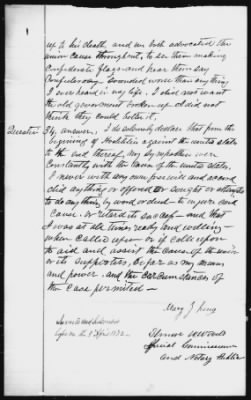 up to his death, and we both advocated the
union cause throughout, to see them making
Confederate flags and hear them say
Confederacy sounded worse than any thing
I ever heard in my life. I did not want
the old government broken up & did not
think they could better it.
Question 34, answer, I do solemnly declare that from the
beginning of Hostilities against the united states
to the end thereof, my sympathies were
Constantly with the cause of the united states.
I never with my own free will and accord
did any thing or offered or sought or attempted
to do any thing by word or deed to injure said
cause, or retard its success — and that
I was at all times ready and willing —
when called upon — or if called upon
to aid and assist the cause of the union
or its supporters, so far as my means
and power and the circumstances of
the case permitted —
Mary J King
Sworn to and subscribed
before me
Commissioner
and Notary Public